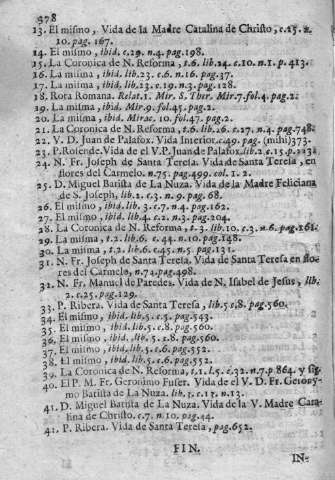 978
13. El mismo, Vida de la Madre Catalina de Christo, c.25. n.
10. pag. 167.
14. El mismo, ibid. c.29. n.4. pag. 198.
15. La Coronica de N. Reforma, t.6. lib.24. c.10. n.1. p.413.
16. La misma, ibid. lib.23. c.6. n.16. pag.37.
17. La misma, ibid. lib.23. c.19. n.3. pag.128.
18. Rota Romana. Relat.1. Mir. S. Ther. Mir.7. fol.4. pag.2.
19. La misma, ibid. Mir.9. fol.45. pag.2.
20. La misma, ibid. Mirac. 10. fol.47. pag.2.
21. La Coronica de N. Reforma, t.6. lib.26. c.27. n.4. pag.748.
22. V. D. Juan de Palafox. Vida Interior. c.49. pag. (mihi) 373.
23. P. Rosende. Vida de el V. P. Juan de Palafox. lib.2. c.15. p.213.
24. N. Fr. Joseph de Santa Teresa. Vida de Santa Teresa, en
flores del Carmelo. n.75. pag.499. col. 1. 2.
25. D. Miguel Batista de La Nuza. Vida de la Madre Feliciana
de S. Joseph, lib.1. c.3. n.9. pag.68.
26. El mismo, ibid. lib. 3. c.7. n.4. pag.162.
27. El mismo, ibid. lib.4. c.2. n.3. pag.204.
28. La Coronica de N. Reforma, t.3. lib.10. c.3. n.6. pag.161.
29. La misma, t.2. lib.6. c.44. n.10. pag.148.
30. La misma, t.2. lib.6. c.45. n.5. pag.131.
31. N. Fr. Joseph de Santa Teresa. Vida de Santa Teresa en flo-
res del Carmelo, n.74. pag.498.
32. N. Fr. Manuel de Paredes. Vida de N. Isabel de Jesus, lib.
2. c.25. pag.129.
33. P. Ribera. Vida de Santa Teresa, lib.5 c.8. pag.560.
34. El mismo, ibid. lib.5. c.5. pag.543.
35. El mismo, ibid. lib.5. c.8. pag.560.
36. El mismo, ibid. lib. 5. c.8. pag.560.
37. El mismo, ibid. lib.5. c.6. pag.552.
38. El mismo, ibid. lib.5. c.6. pag.552.
39. La Coronica de N. Reforma, t.1. l.5. c.32. n.7. p 864. y sig.
40. El P. M. Fr. Geronimo Fuser. Vida de el V. D. Fr. Gerony-
mo Batista de La Nuza. lib. 1. c.17. n.13.
41. D. Miguel Batista de La Nuza. Vida de la V. Madre Cata-
lina de Christo. c.7. n.10. pag.44.
41. P. Ribera. Vida de Santa Teresa, pag.652.
FIN.
IN-